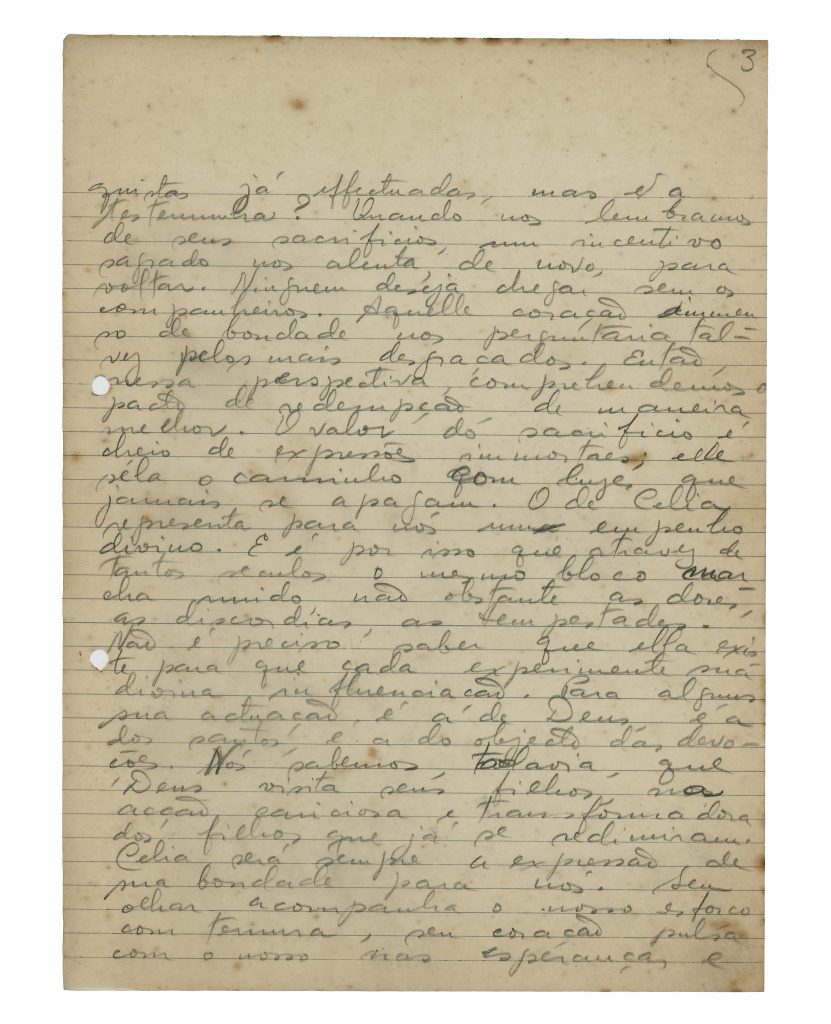 3
quistas já effectuadas, mas e a
testemunha? Quando nos lembramos
de seus sacrificios, um incentivo
sagrado nos alenta, de novo, para
voltar. Ninguem deseja chegar sem os
companheiros. Aquelle coração immen
so de bondade nos perguntaria tal=
vez pelos mais desgraçados. Então,
nessa perspectiva, comprehendemos o
pacto de redempção de maneira
melhor. O valor do sacrificio é
cheio de expressões immortaes; elle
séla o caminho com luzes que
jamais se apagam. O de Celia
representa para nós um empenho
divino. E é por isso que atravez de
tantos seculos o mesmo bloco mar
cha unido não obstante as dores,
as discordias, as tempestades.
Não é preciso saber que ella exis
te para que cada experimente sua
divina influenciação. Para alguns
sua actuação é a de Deus, é a
dos santos e a do objecto das devo-
ções. Nós sabemos, todavia, que
Deus visita seus filhos, na
acção cariciosa e transformadora
dos filhos que já se redimiram.
Celia será sempre a expressão de
sua bondade para nós. Seu
olhar acompanha o nosso esforço
com ternura, seu coração pulsa
com o nosso nas esperanças e